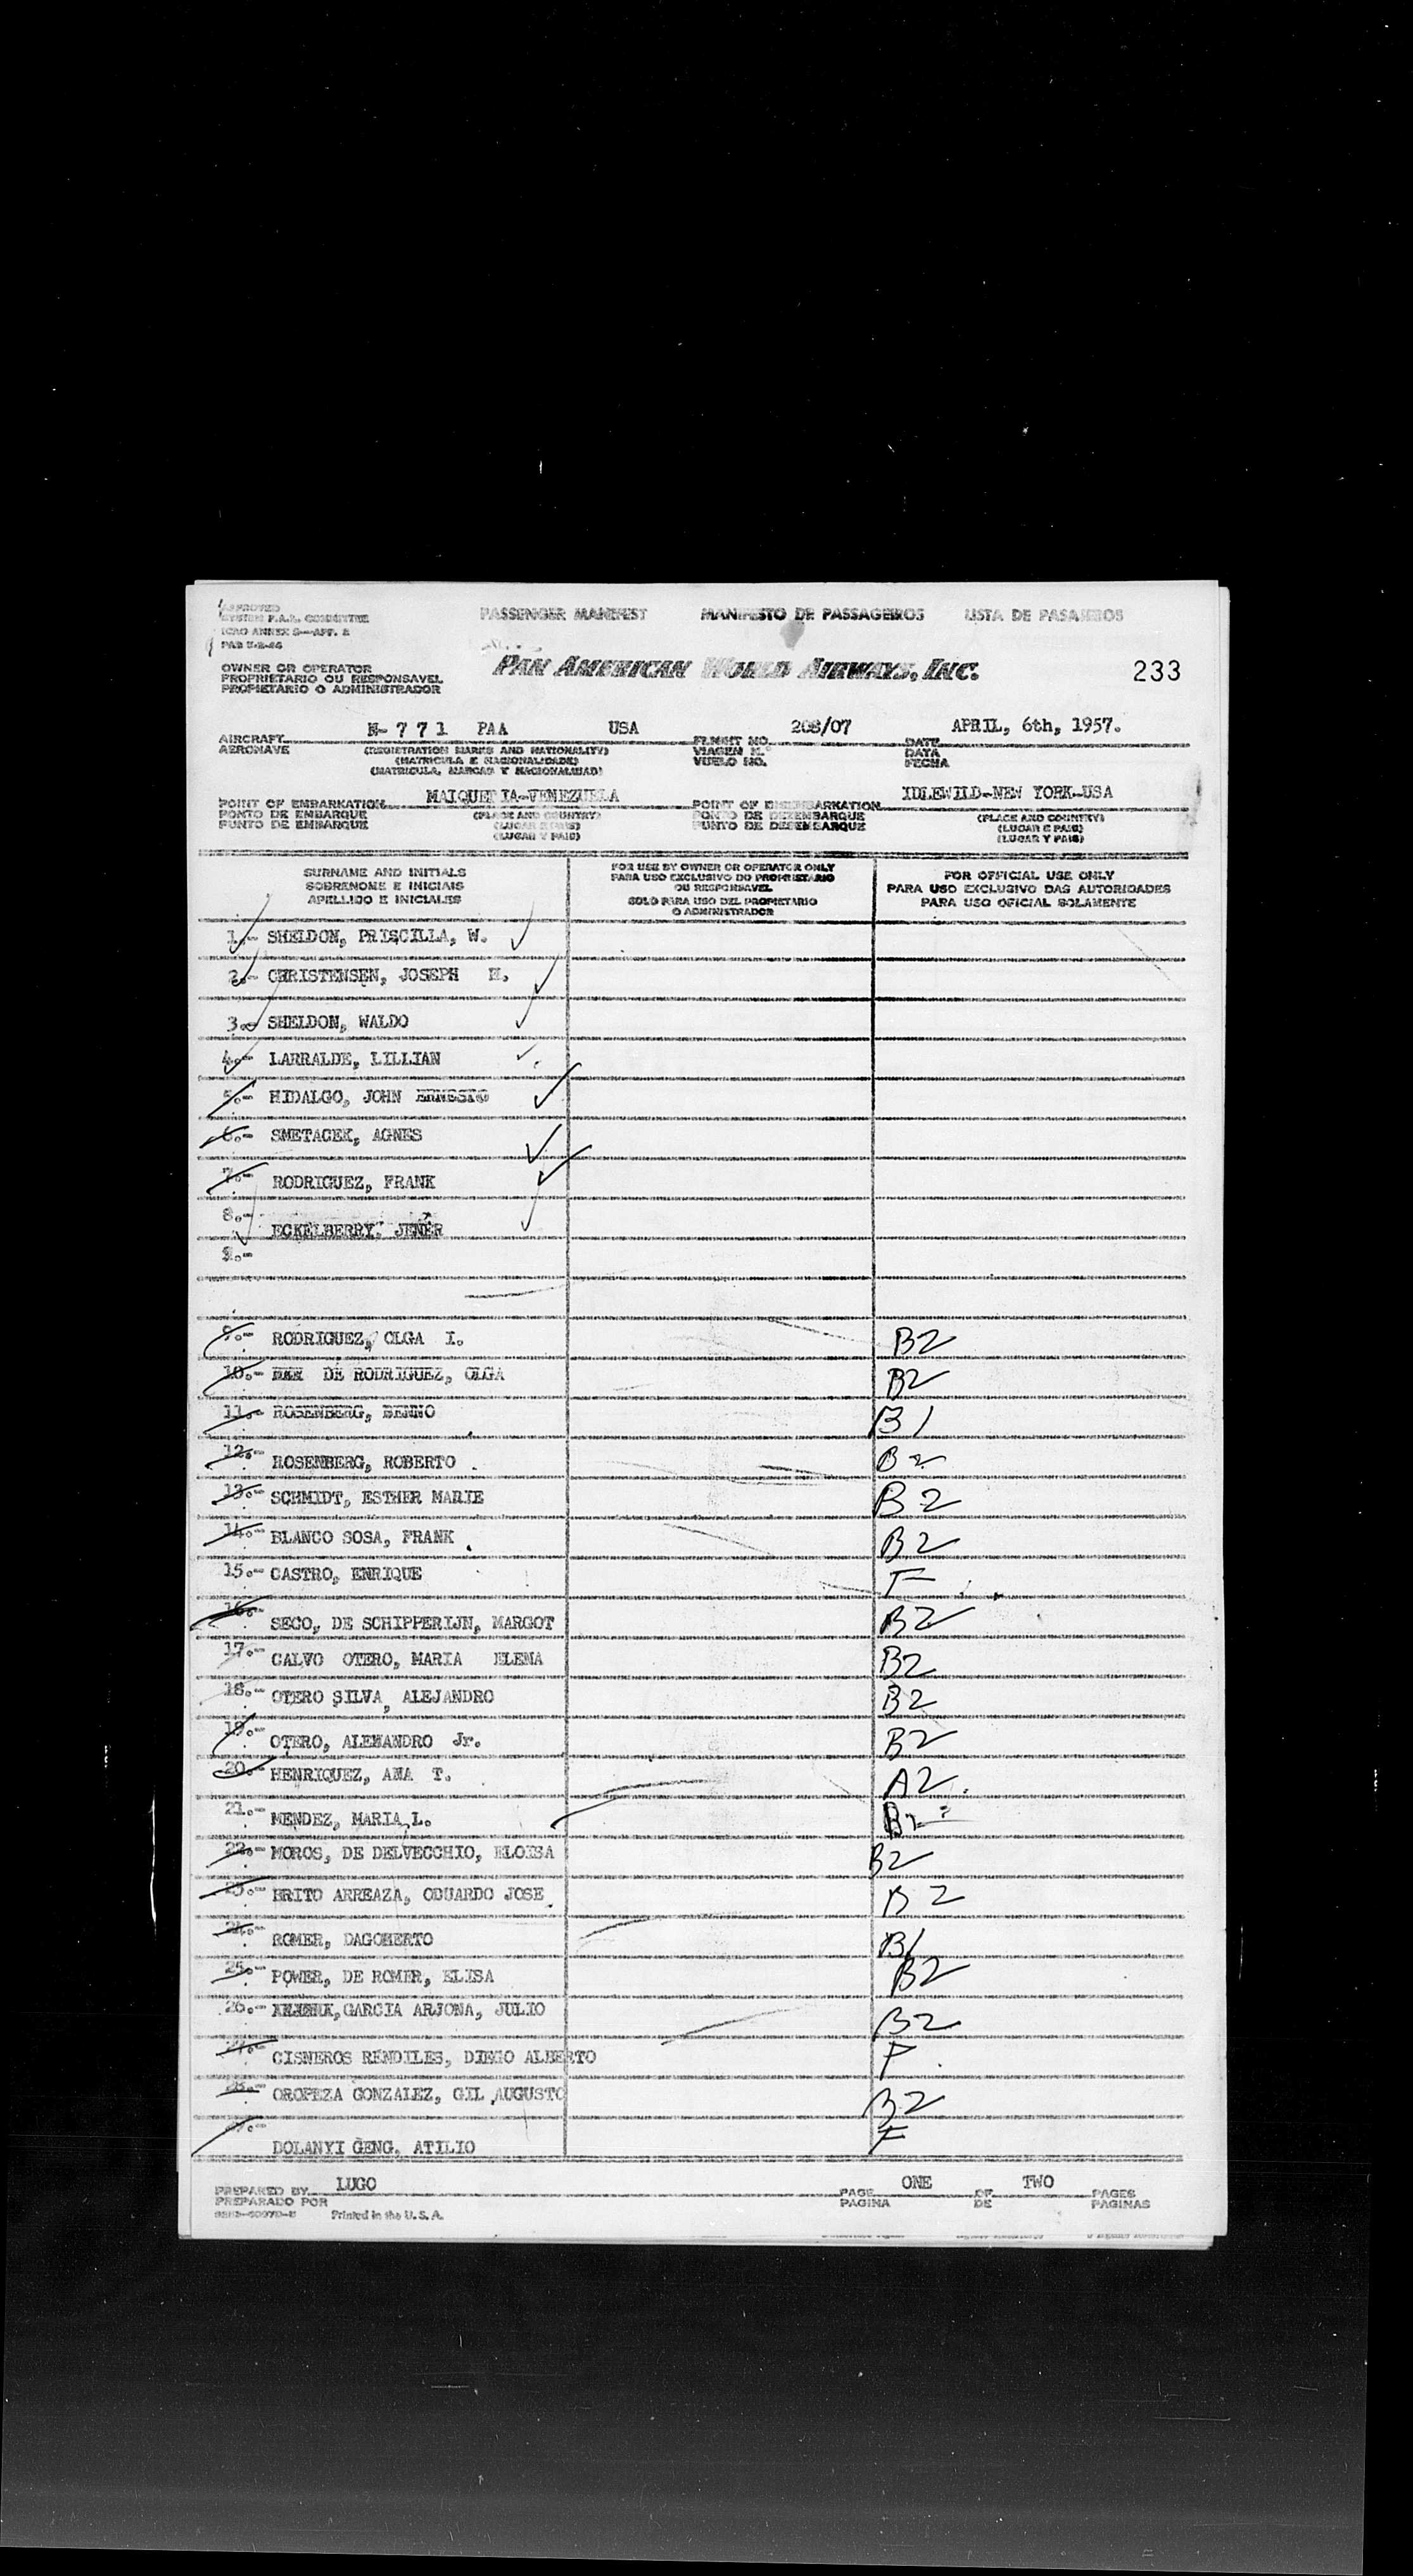 APPROVED
SYSTEM F.A.L. COMMITTEE
ICAO ANNEX 9—APP. 2
PASSENGER MANIFEST MANIFESTO DE PASSAGEIROS LISTA DE PASAJEROS
OWNER OR OPERATOR
PROPRIETARIO OU RESPONSAVEL
PROPIETARIO O ADMINISTRADOR
PAN AMERICAN WORLD AIRWAYS, INC.
233
AIRCRAFT N-771 PAA USA FLIGHT NO. 208/07 DATE APRIL, 6th, 1957.
AERONAVE (REGISTRATION MARKS AND NATIONALITY) VIAGEM N.° DATA
(MATRICULA E NACIONALIDADE) VUELO NO. FECHA
(MATRICULA, MARCAS Y NACIONALIDAD)
POINT OF EMBARKATION MAIQUETIA-VENEZUELA POINT OF DISEMBARKATION IDLEWILD-NEW YORK-USA
PONTO DE EMBARQUE (PLACE AND COUNTRY) PONTO DE DESEMBARQUE (PLACE AND COUNTRY)
PUNTO DE EMBARQUE (LUGAR E PAIS) PUNTO DE DESEMBARQUE (LUGAR E PAIS)
(LUGAR Y PAIS) (LUGAR Y PAIS)
SURNAME AND INITIALS
SOBRENOME E INICIAIS
APELLIDO E INICIALES
FOR USE BY OWNER OR OPERATOR ONLY
PARA USO EXCLUSIVO DO PROPRIETARIO
OU RESPONSAVEL
SOLO PARA USO DEL PROPIETARIO
O ADMINISTRADOR
FOR OFFICIAL USE ONLY
PARA USO EXCLUSIVO DAS AUTORIDADES
PARA USO OFICIAL SOLAMENTE
1.- SHELDON, PRISCILLA, W.
2.- CHRISTENSEN, JOSEPH H.
3.- SHELDON, WALDO
4.- LARRALDE, LILLIAN
5.- HIDALGO, JOHN ERNESTO
6.- SMETACEK, AGNES
7.- RODRIGUEZ, FRANK
8.- ECKELBERRY, JENER
9.-
9.- RODRIGUEZ, OLGA I. B2
10.- DE RODRIGUEZ, OLGA B2
11.- ROSENBERG, BENNO B1
12.- ROSENBERG, ROBERTO B2
13.- SCHMIDT, ESTHER MARIE B2
14.- BLANCO SOSA, FRANK B2
15.- CASTRO, ENRIQUE F
16.- SECO, DE SCHIPPERIJN, MARGOT B2
17.- CALVO OTERO, MARIA ELENA B2
18.- OTERO SILVA, ALEJANDRO B2
19.- OTERO, ALEMANDRO Jr. B2
20.- HENRIQUEZ, ANA T. A2
21.- MENDEZ, MARIA L. B2
22.- MOROS, DE DELVECCHIO, ELOISA B2
23.- BRITO ARREAZA, ODUARDO JOSE B2
24.- ROMER, DAGOBERTO B1
25.- POWER, DE ROMER, ELISA B2
26.- GARCIA ARJONA, JULIO B2
27.- CISNEROS RENDILES, DIEGO ALBERTO F
28.- OROPEZA GONZALEZ, GIL AUGUSTO B2
29.- DOLANYI GENG. ATILIO F
PREPARED BY LUGO PAGE ONE OF TWO PAGES
PREPARADO POR PAGINA DE PAGINAS
Printed in the U. S. A.